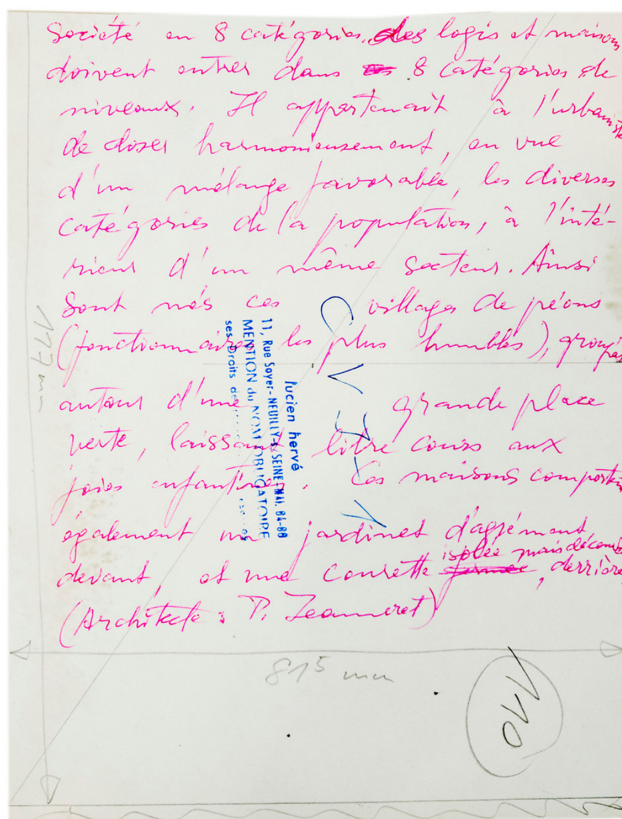 Société en 8 catégories, des logis et maisons
doivent entrer dans 8 catégories de
niveaux. Il appartenait à l'urbaniste
de doser harmonieusement, en vue
d'un mélange favorable, les diverses
catégories de la population, à l'inté-
rieur d'un même secteur. Ainsi
sont nés ces villages de péons
(fonctionnaires les plus humbles), groupés
autour d'une grande place
verte, laissant libre cours aux
joies enfantines. Ces maisons comportent
également un jardinet d'agrément
devant, et une courette isolée, derrière
(Architecte : P. Jeanneret)
lucien hervé
11, Rue Soyer-NEUILLY-s/SEINE MAI. 84-88
MENTION du NOM OBLIGATOIRE
ses Droits
C V J-1
117 mm
815 mm
110